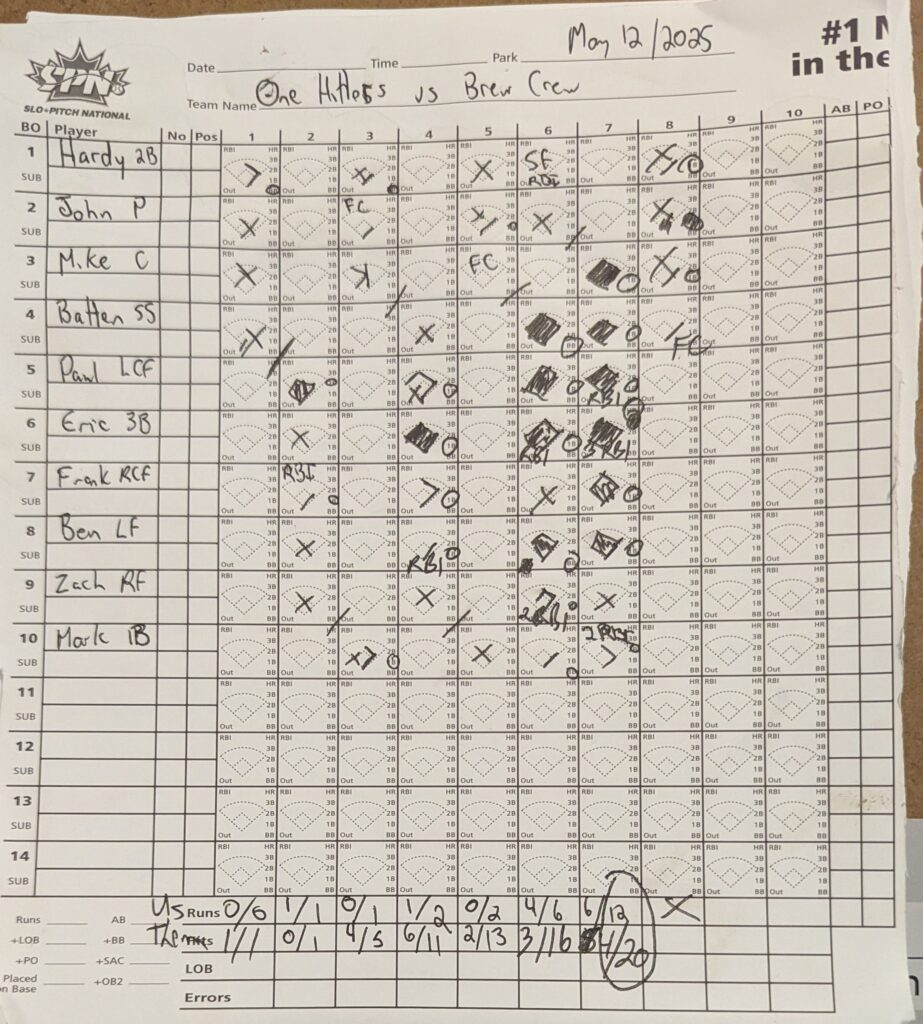 #1 N
in the
SPN
SLO•PITCH NATIONAL
Date Time Park May 12/2025
Team Name One Hitless vs Brew Crew
BO Player No Pos 1 2 3 4 5 6 7 8 9 10 AB PO
1 Hardy 2B SF RBI
SUB
2 John P FC
SUB
3 Mike C FC
SUB
4 Batten SS FC
SUB
5 Paul LCF RBI
SUB
6 Eric 3B RBI 3 RBI
SUB
7 Frank RCF RBI
SUB
8 Ben LF RBI
SUB
9 Zach RF 2 RBI
SUB
10 Mark 1B 2 RBI
SUB
11
SUB
12
SUB
13
SUB
14
SUB
Us Runs 0/0 1/1 0/1 1/2 0/2 4/6 6/12 X
Them 1/1 0/1 4/5 6/11 2/13 3/16 4/20
LOB
Errors
Runs AB
+LOB +BB
+PO +SAC
Placed on Base +OB2